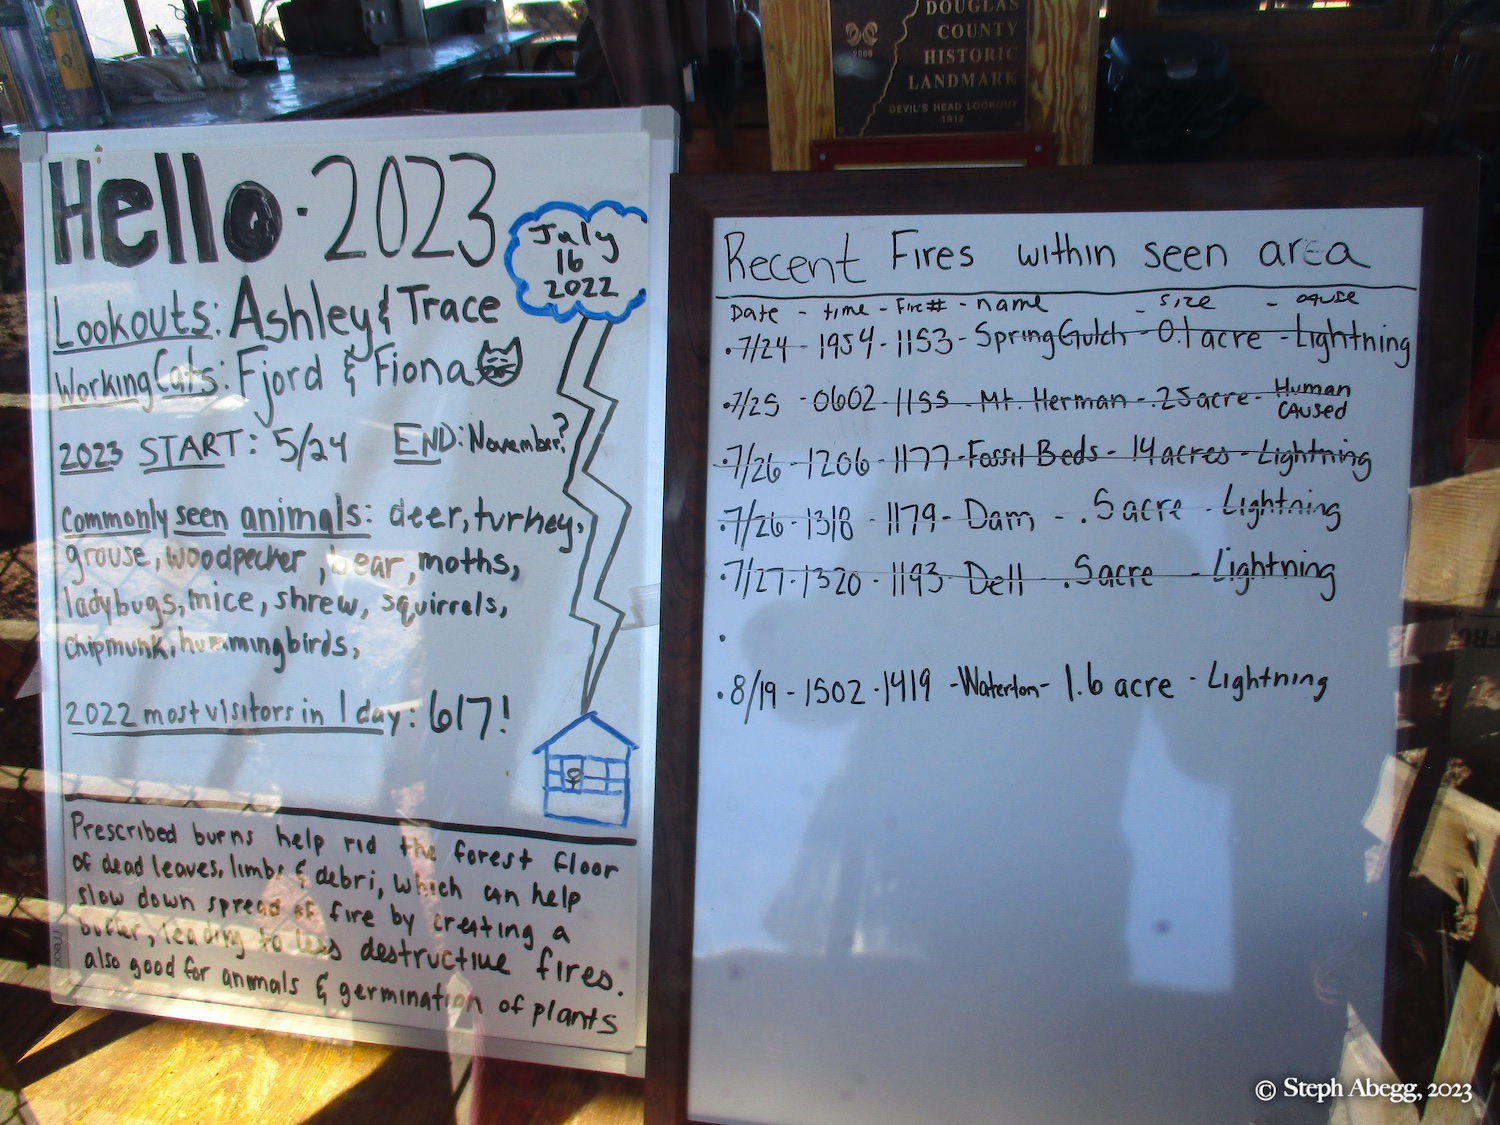 DOUGLAS
COUNTY
HISTORIC
LANDMARK
DEVIL'S HEAD LOOKOUT
1912
2006
Hello · 2023
July
16
2022
Lookouts: Ashley & Trace
Working Cats: Fjord & Fiona
2023 START: 5/24 END: November?
Commonly seen animals: deer, turkey,
grouse, woodpecker, bear, moths,
ladybugs, mice, shrew, squirrels,
chipmunk, hummingbirds,
2022 most visitors in 1 day: 617!
Prescribed burns help rid the forest floor
of dead leaves, limbs & debri, which can help
slow down spread of fire by creating a
buffer, leading to less destructive fires.
also good for animals & germination of plants
Recent Fires within seen area
Date - time - Fire# - name - size - cause
• 7/24 - 1954 - 1153 - Spring Gulch - 0.1 acre - Lightning
• 7/25 - 0602 - 1155 - Mt. Herman - .25 acre - Human
CAUSED
• 7/26 - 1206 - 1177 - Fossil Beds - 14 acres - Lightning
• 7/26 - 1318 - 1179 - Dam - .5 acre - Lightning
• 7/27 - 1320 - 1193 - Dell - .5 acre - Lightning
•
• 8/19 - 1502 - 1419 - Waterton - 1.6 acre - Lightning
© Steph Abegg, 2023